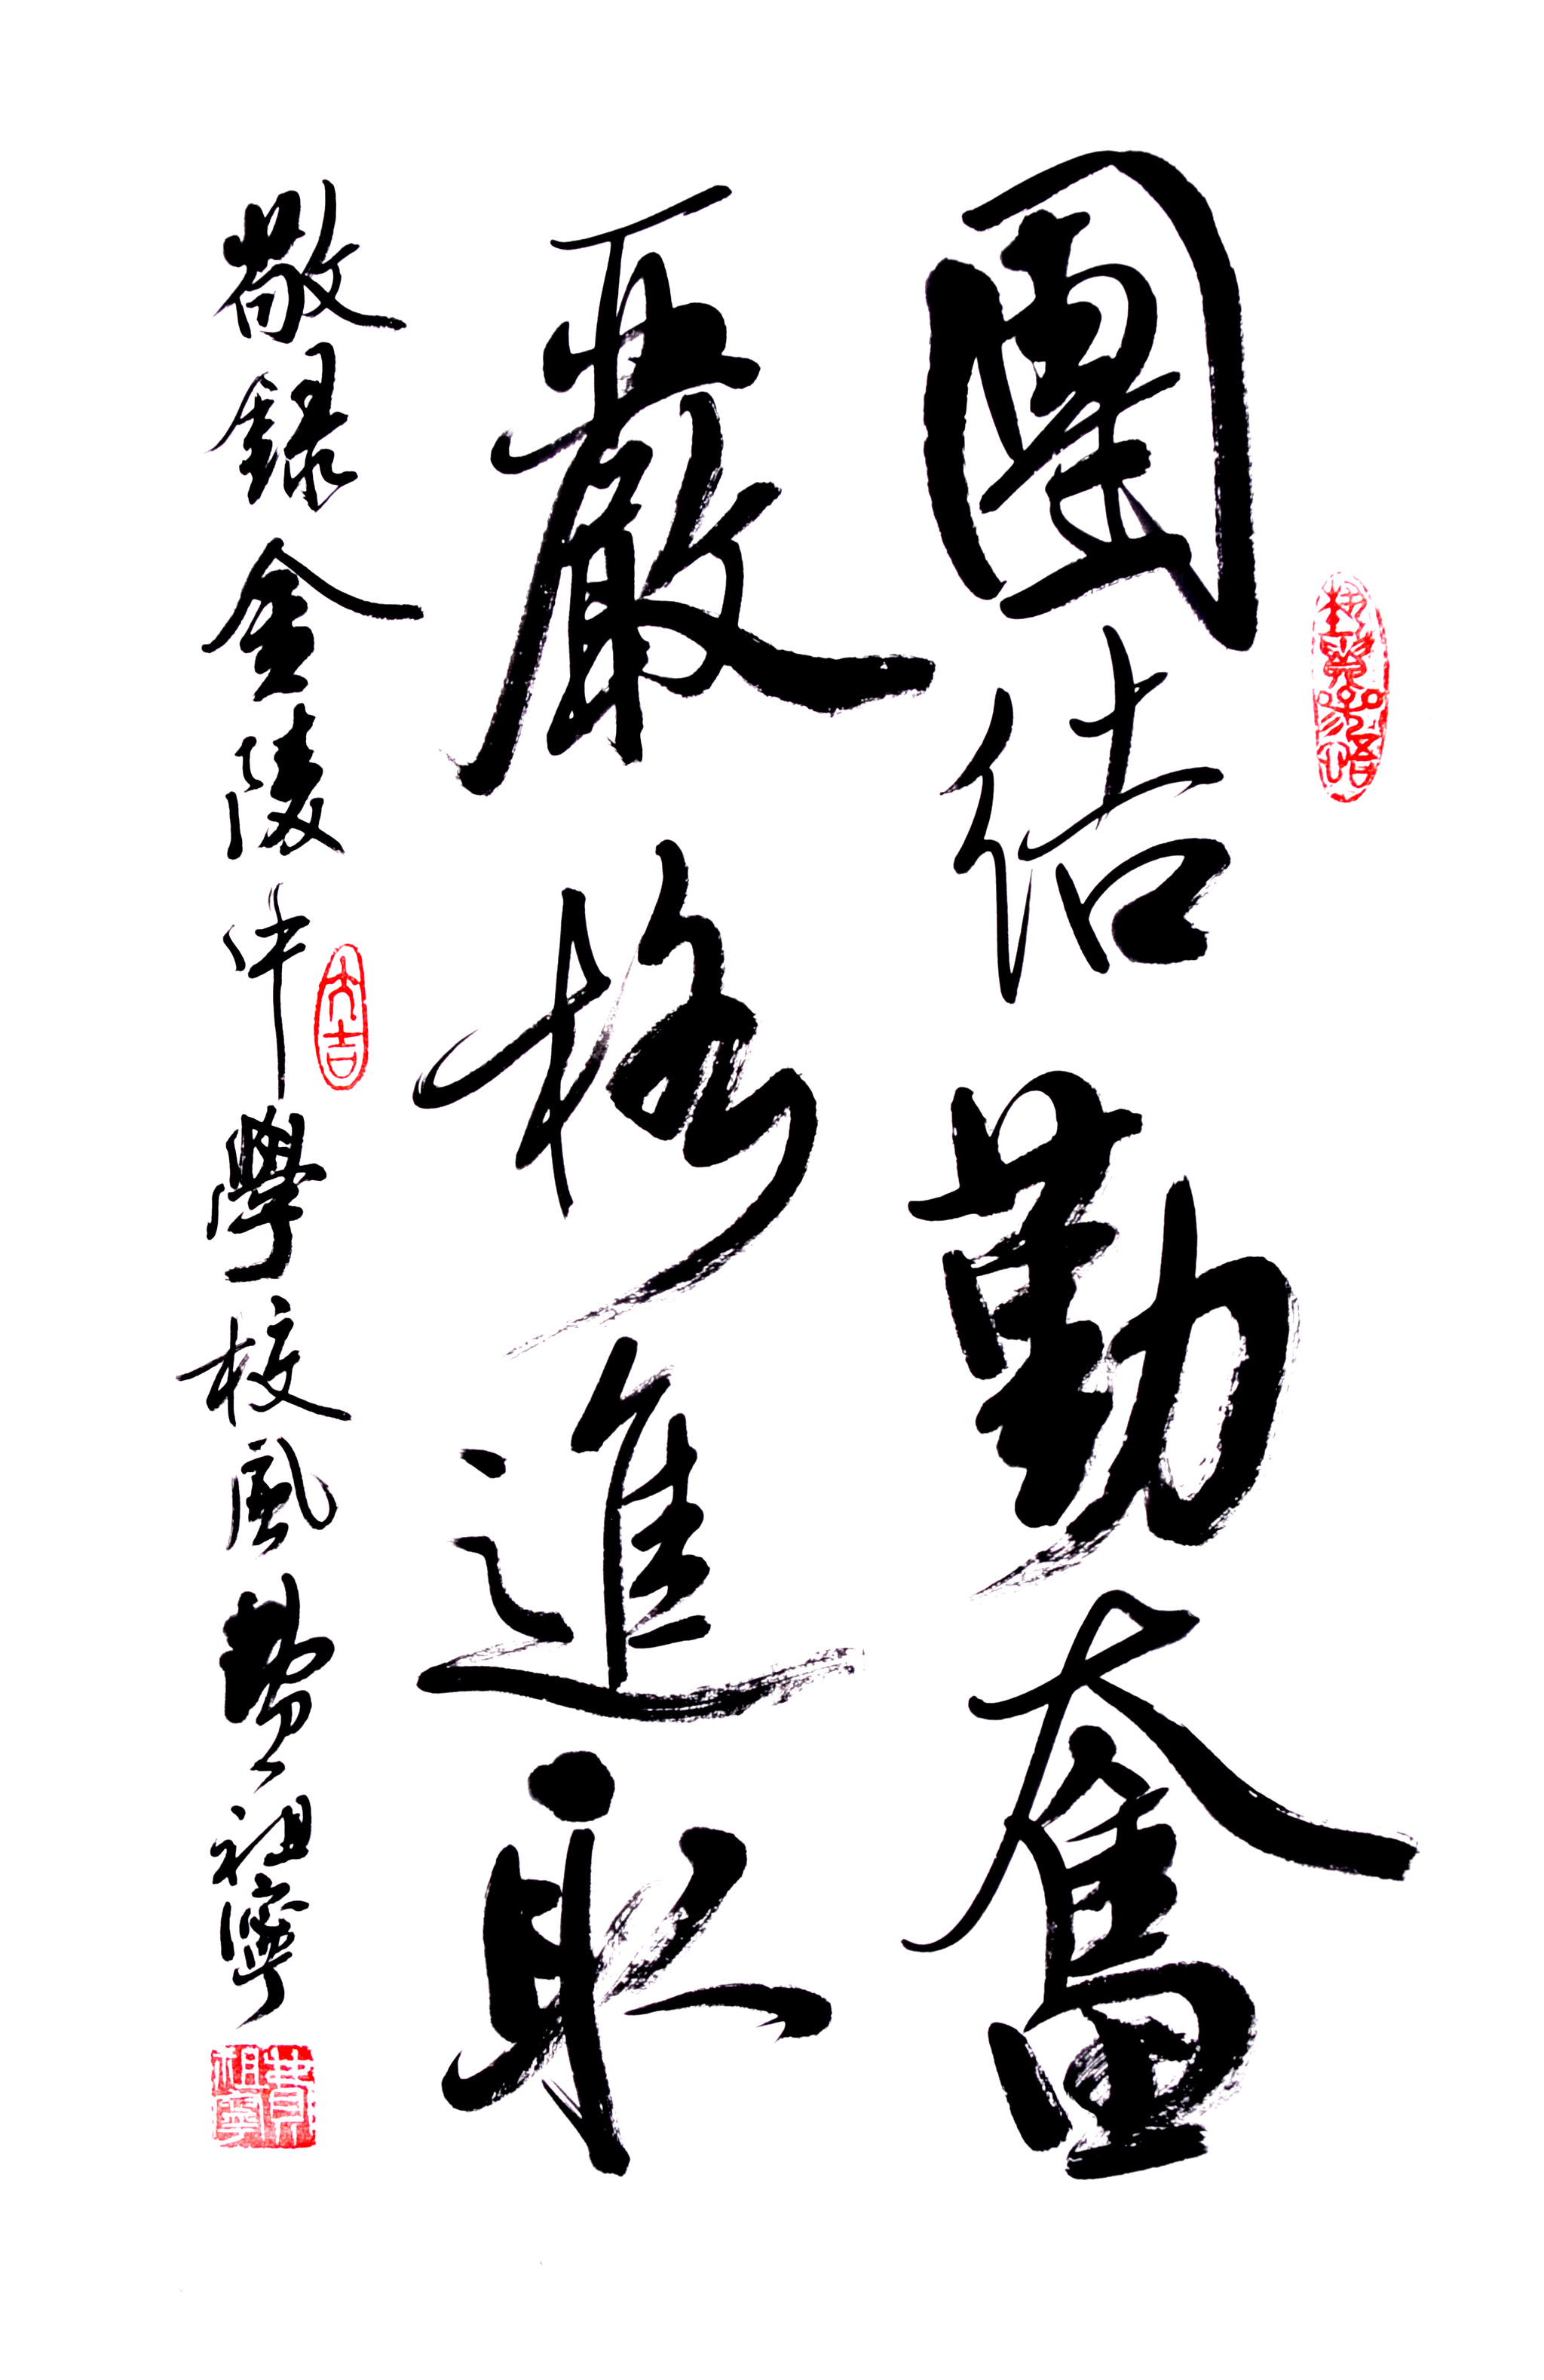 團結勤奮
嚴格進取
敬錄金陵中學校風 費祖寧
大吉
費祖寧